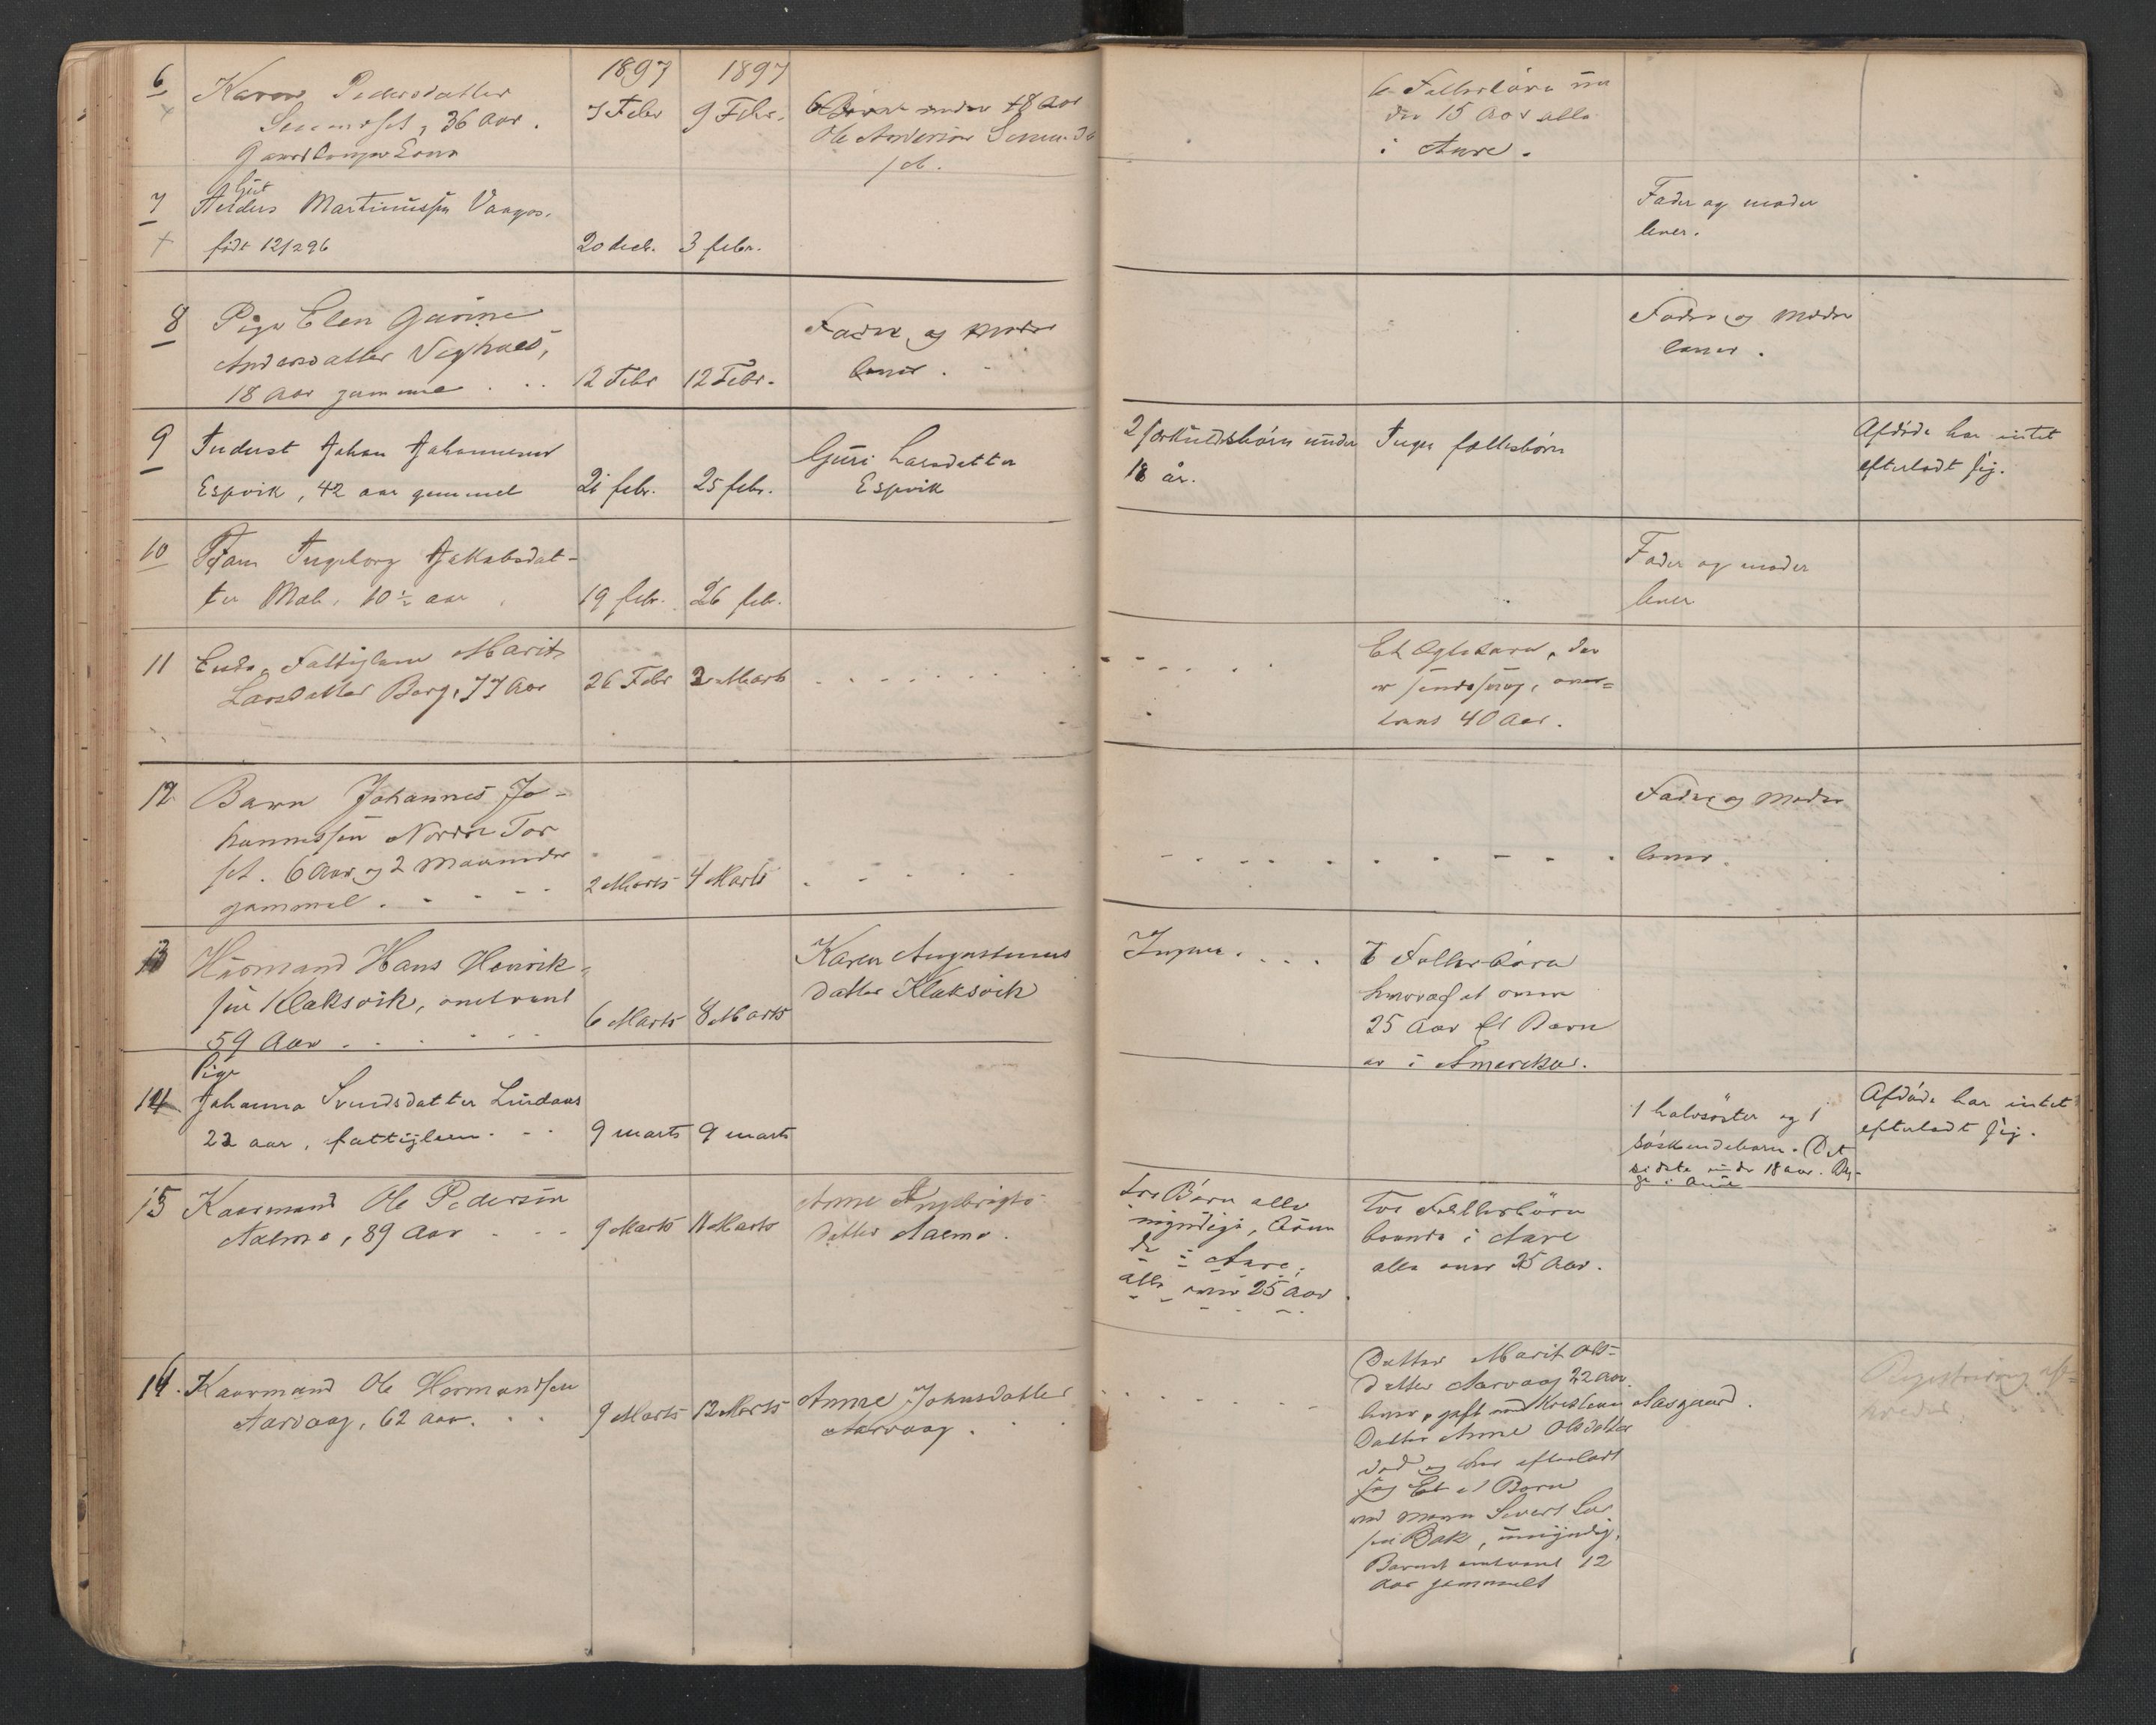 1897 1897
6 Karen Pedersdatter 7 Febr 9 Febr. 6 Børn under 18 Aar 6 Fellesbørn un
36 Aar. Ole Andersen der 15 Aar alle
i Aure.
7 Anders Martinussen Vaagos. Fader og moder
født 12/2 96 20 decbr. 3 febr. lever.
8 Pige Elen Gurine Fader og Moder Fader og Moder
Andersdatter lever. lever.
18 Aar gammel 12 Febr 12 Febr.
9 Inderst Johan Johannesen Guri Larsdatter 2 særkuldsbørn under Ingen fellesbørn Afdøde har intet
Espvik, 42 aar gammel 21 febr. 25 febr. Espvik 18 år. efterladt sig.
10 Ingeborg Jakobsdat- Fader og moder
ter 10 ½ aar 19 febr. 26 feb. lever
11 Enke, Fattiglem Marit Et Ægtebarn, der
Larsdatter Berg, 77 Aar 26 Febr 2 Marts er sindssvag, om-
trent 40 Aar.
12 Barn Johannes Jo- Fader og Moder
hannessen Nordre Tor
set. 6 Aar og 2 Maaneder lever.
gammel. 2 Marts 4 Marts
13 Husmand Hans Henrik- Karen Augustinus Ingen. 7 Fellesbørn
sen Klaksvik, omtrent datter Klaksvik hvoraf et over
59 Aar 6 Marts 8 Marts 25 Aar Et Barn
er i Amerika.
Pige
14 Johanna Svendsdatter Lindaas 1 halvsøster og 1 Afdøde har intet
22 aar, fattiglem. 9 marts 9 marts søskendebarn. Det efterladt sig.
sidste under 18 aar. Beg-
ge i Aure
15 Kaarmand Ole Pedersen Anne Ingebrigts- tre Børn alle To Fellesbørn
Aalmo, 89 Aar 9 Marts 11 Marts datter Aalmo. myndige, boen boende i Aure
de i Aure, alle over 25 Aar.
alle over 25 Aar
16. Kaarmand Ole Hermandsen Anne Johnsdatter Datter Marit Ols-
Aarvaag, 62 aar. 9 Marts 12 Marts Aarvaag. datter Aarvaag 22 Aar
lever, gift med Kristian Aasgaard.
Datter Anne Olsdatter
død og har efterladt
sig Et et Barn
med Mann Sivert Lar
sen Bak, umyndig,
Barnet omtrent 12
Aar gammelt